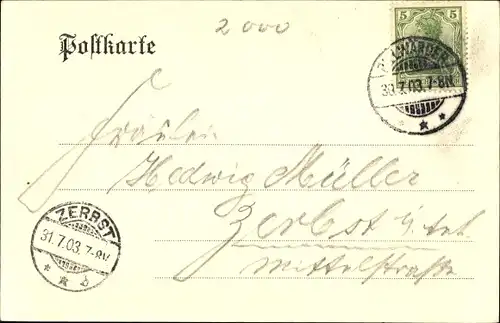 2000
Postkarte
5 5
30.7.03.7-8N
Fräulein
Hedwig Müller
Zerbst i/Anh.
Mittelstraße
ZERBST
31.7.03.7-8V